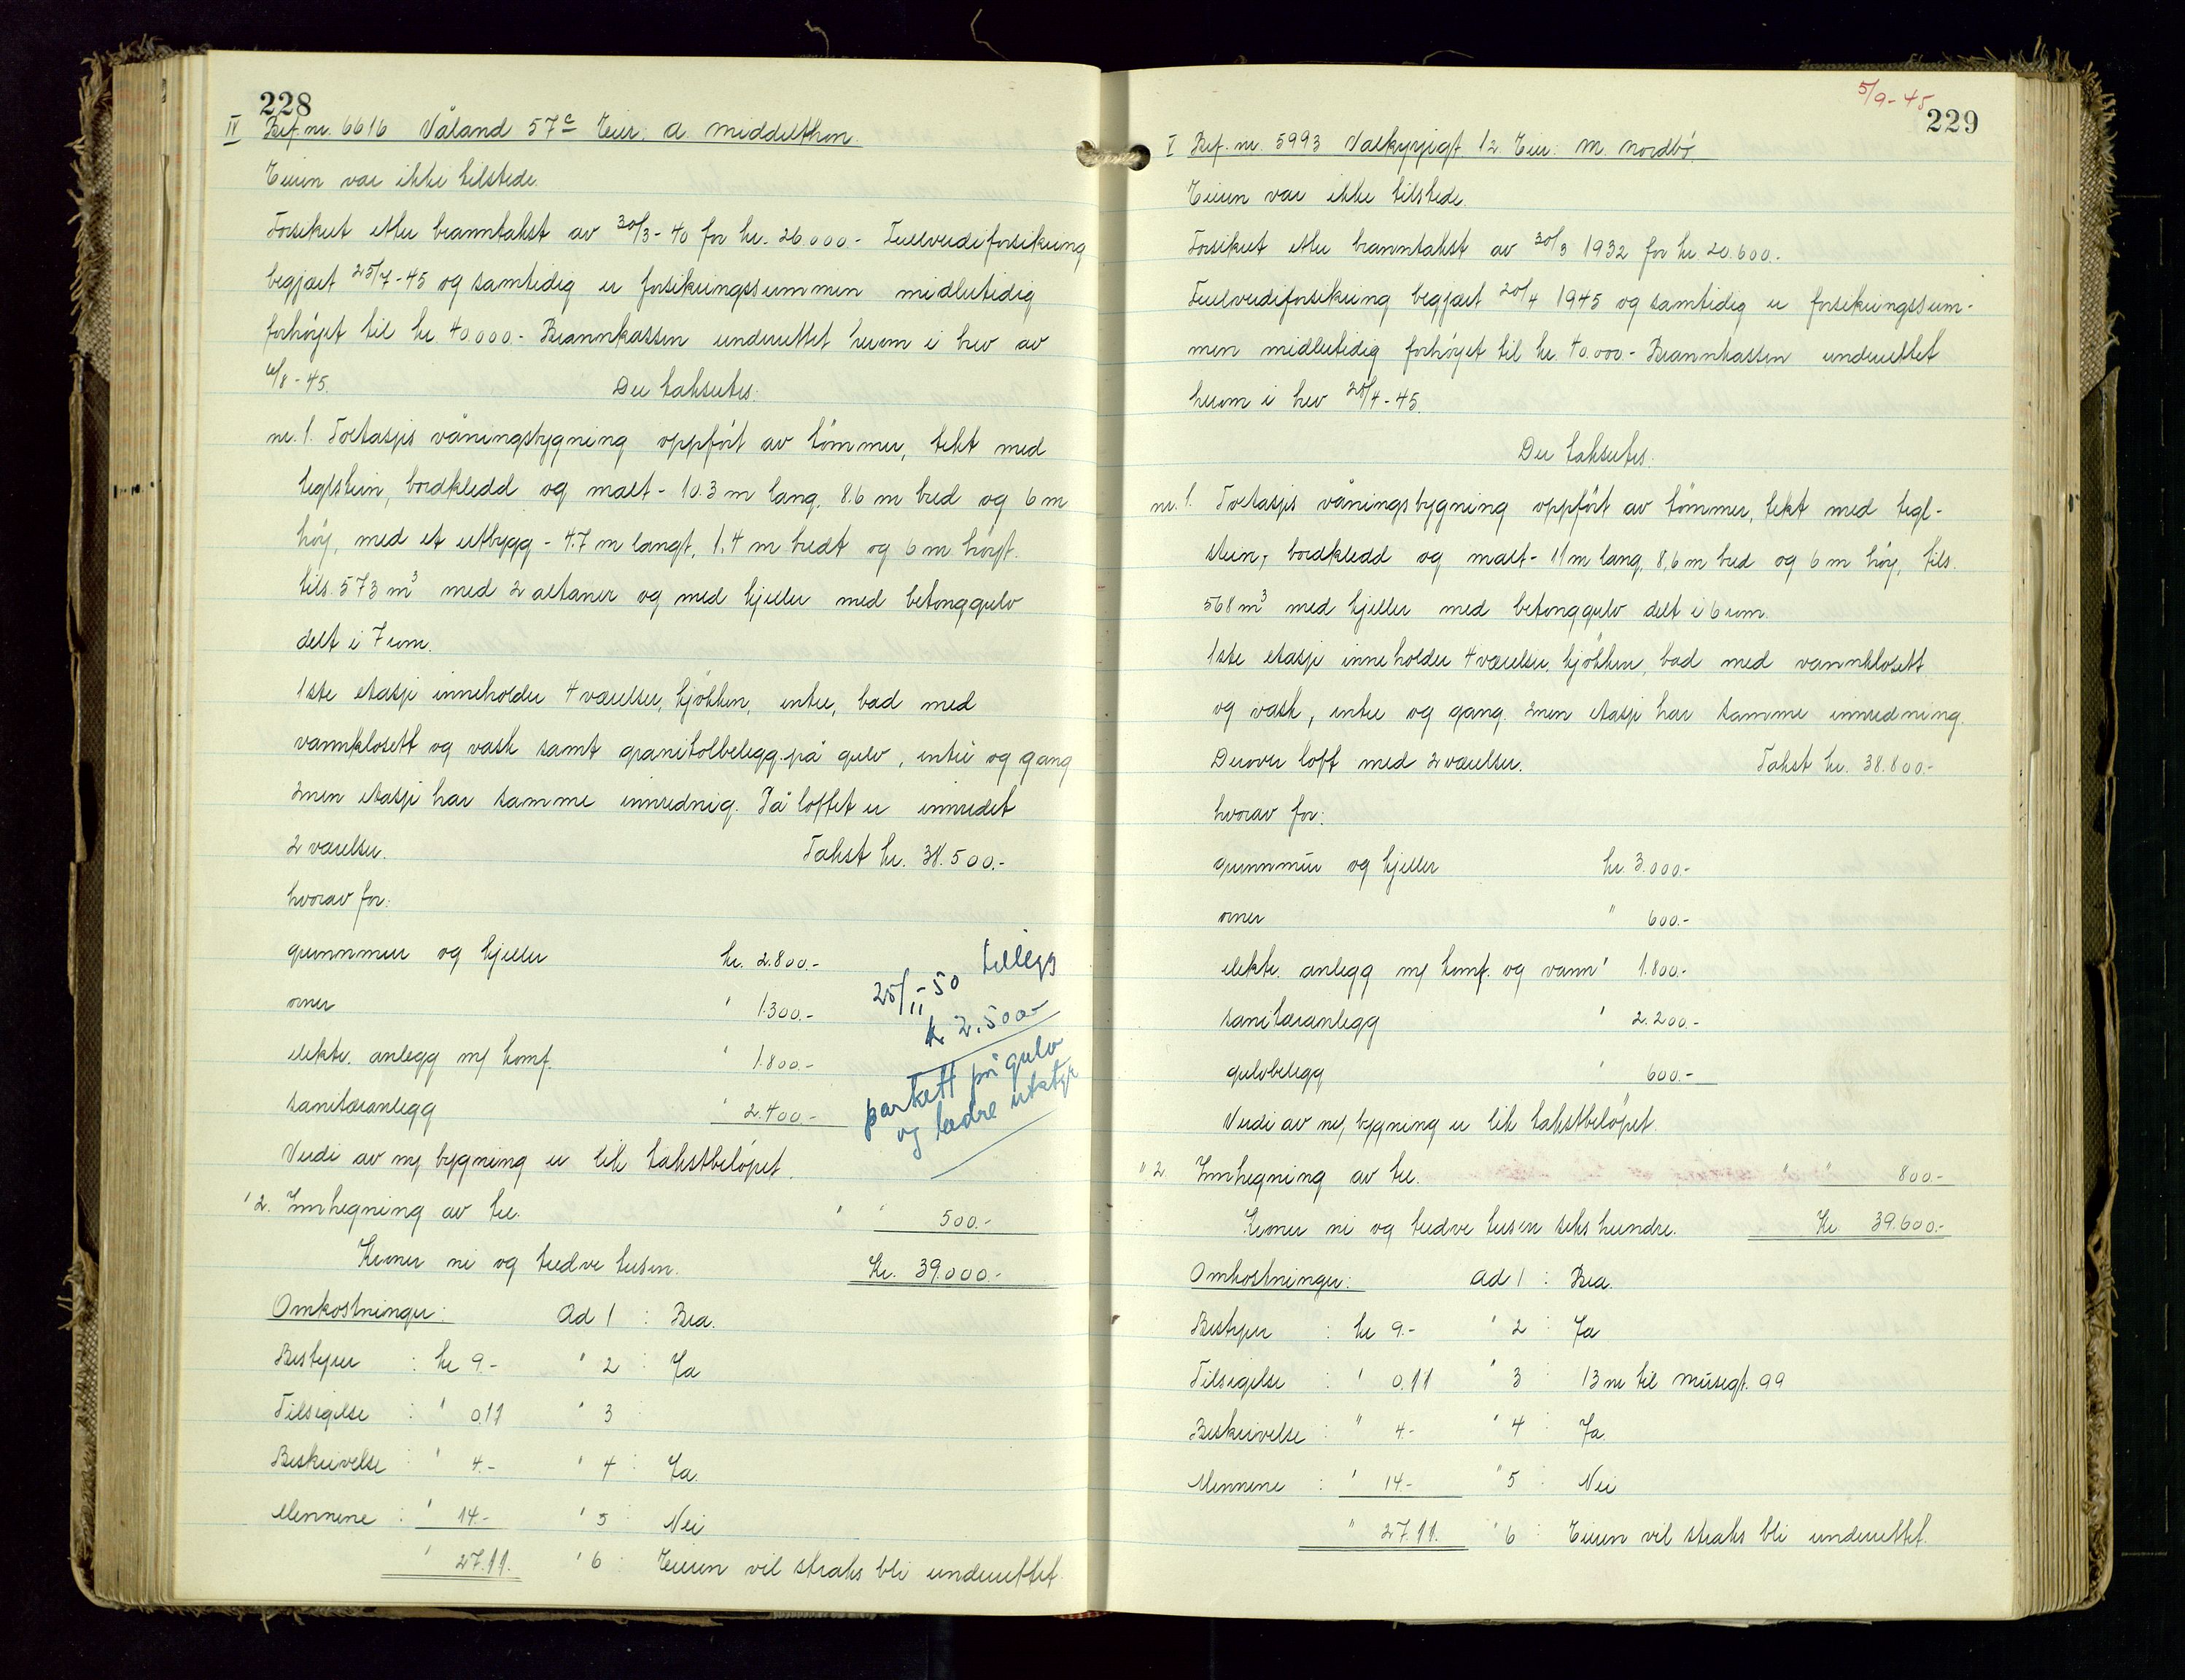 228
IV Brf. nr. 6616 Våland 57c Eier: A. Middelthon.
Eieren var ikke tilstede.
Forsikret etter branntakst av 30/3-40 for kr. 26.000.- Fullverdiforsikring
begjært 25/7-45 og samtidig er forsikringssummen midlertidig
forhøyet til kr 40.000.- Brannkassen underrettet herom i brev av
/8-45. Der takseres:
nr. 1. Toetasjes våningsbygning oppført av tømmer, tekt med
teglstein, bordkledd og malt - 10.3 m lang, 8.6 m bred og 6 m
høy, med et utbygg - 4.7 m langt, 1,4 m bredt og 6 m høyt.
tils. 573 m³ med 2 altaner og med kjeller med betonggulv
delt i 7 rom.
1ste etasje inneholder 4 værelser, kjøkken, entre, bad med
vannklosett og vask samt granitolbelegg på gulv, entre og gang
2nen etasje har samme innrednig. På loftet er innredet
2 værelser. Takst kr. 38.500.-
hvorav for:
grunnmur og kjeller kr. 2.800.-
ovner " 1.300.-
elektr. anlegg m/ komf. " 1.800.-
sanitæranlegg " 2.400.-
25/11-50 tillegg
k 2.500.-
parkett på gulv
og bedre utstyr
Verdi av ny bygning er lik takstbeløpet.
" 2. Innhegning av tre. " " 500.-
Kroner ni og tredve tusen. Kr. 39.000.-
Omkostninger: Ad 1 : Bra.
Bestyrer : kr 9.- " 2 : Ja
Tilsigelse : " 0.11 " 3 :
Beskrivelse : " 4.- " 4 : Ja.
Mennene : " 14.- " 5 : Nei
" 27.11. " 6 : Eieren vil straks bli underrettet.
5/9-45
229
V Brf. nr. 5993 Valkyrjegt. 12 Eier: M. Nordbø.
Eieren var ikke tilstede.
Forsikret etter branntakst av 30/3 1932 for kr. 20.600.-
Fullverdiforsikring begjært 20/4 1945 og samtidig er forsikringssum-
men midlertidig forhøyet til kr. 40.000.- Brannkassen underrettet
herom i brev 25/4-45.
Der takseres:
nr. 1. Toetasjes våningsbygning oppført av tømmer, tekt med tegl-
stein, bordkledd og malt - 11 m lang, 8,6 m bred og 6 m høy, tils.
568 m³ med kjeller med betonggulv delt i 6 rom.
1ste etasje inneholder 4 værelser, kjøkken, bad med vannklosett
og vask, entre og gang. 2nen etasje har samme innredning.
Derover loft med 2 værelser. Takst kr. 38.800.-
hvorav for:
grunnmur og kjeller kr. 3.000.-
ovner " 600.-
elektr. anlegg m/ komf. og vann " 1.800.-
sanitæranlegg " 2.200.-
gulvbelegg " 600.-
Verdi av ny bygning er lik takstbeløpet.
" 2. Innhegning av tre. " " 800.-
Kroner ni og tredve tusen seks hundre. Kr. 39.600.-
Omkostninger: Ad 1 : Bra.
Bestyrer : kr 9.- " 2 : Ja
Tilsigelse : " 0.11 " 3 : 13 m til Musegt. 99
Beskrivelse : " 4.- " 4 : Ja.
Mennene : " 14.- " 5 : Nei
" 27.11. " 6 : Eieren vil straks bli underrettet.